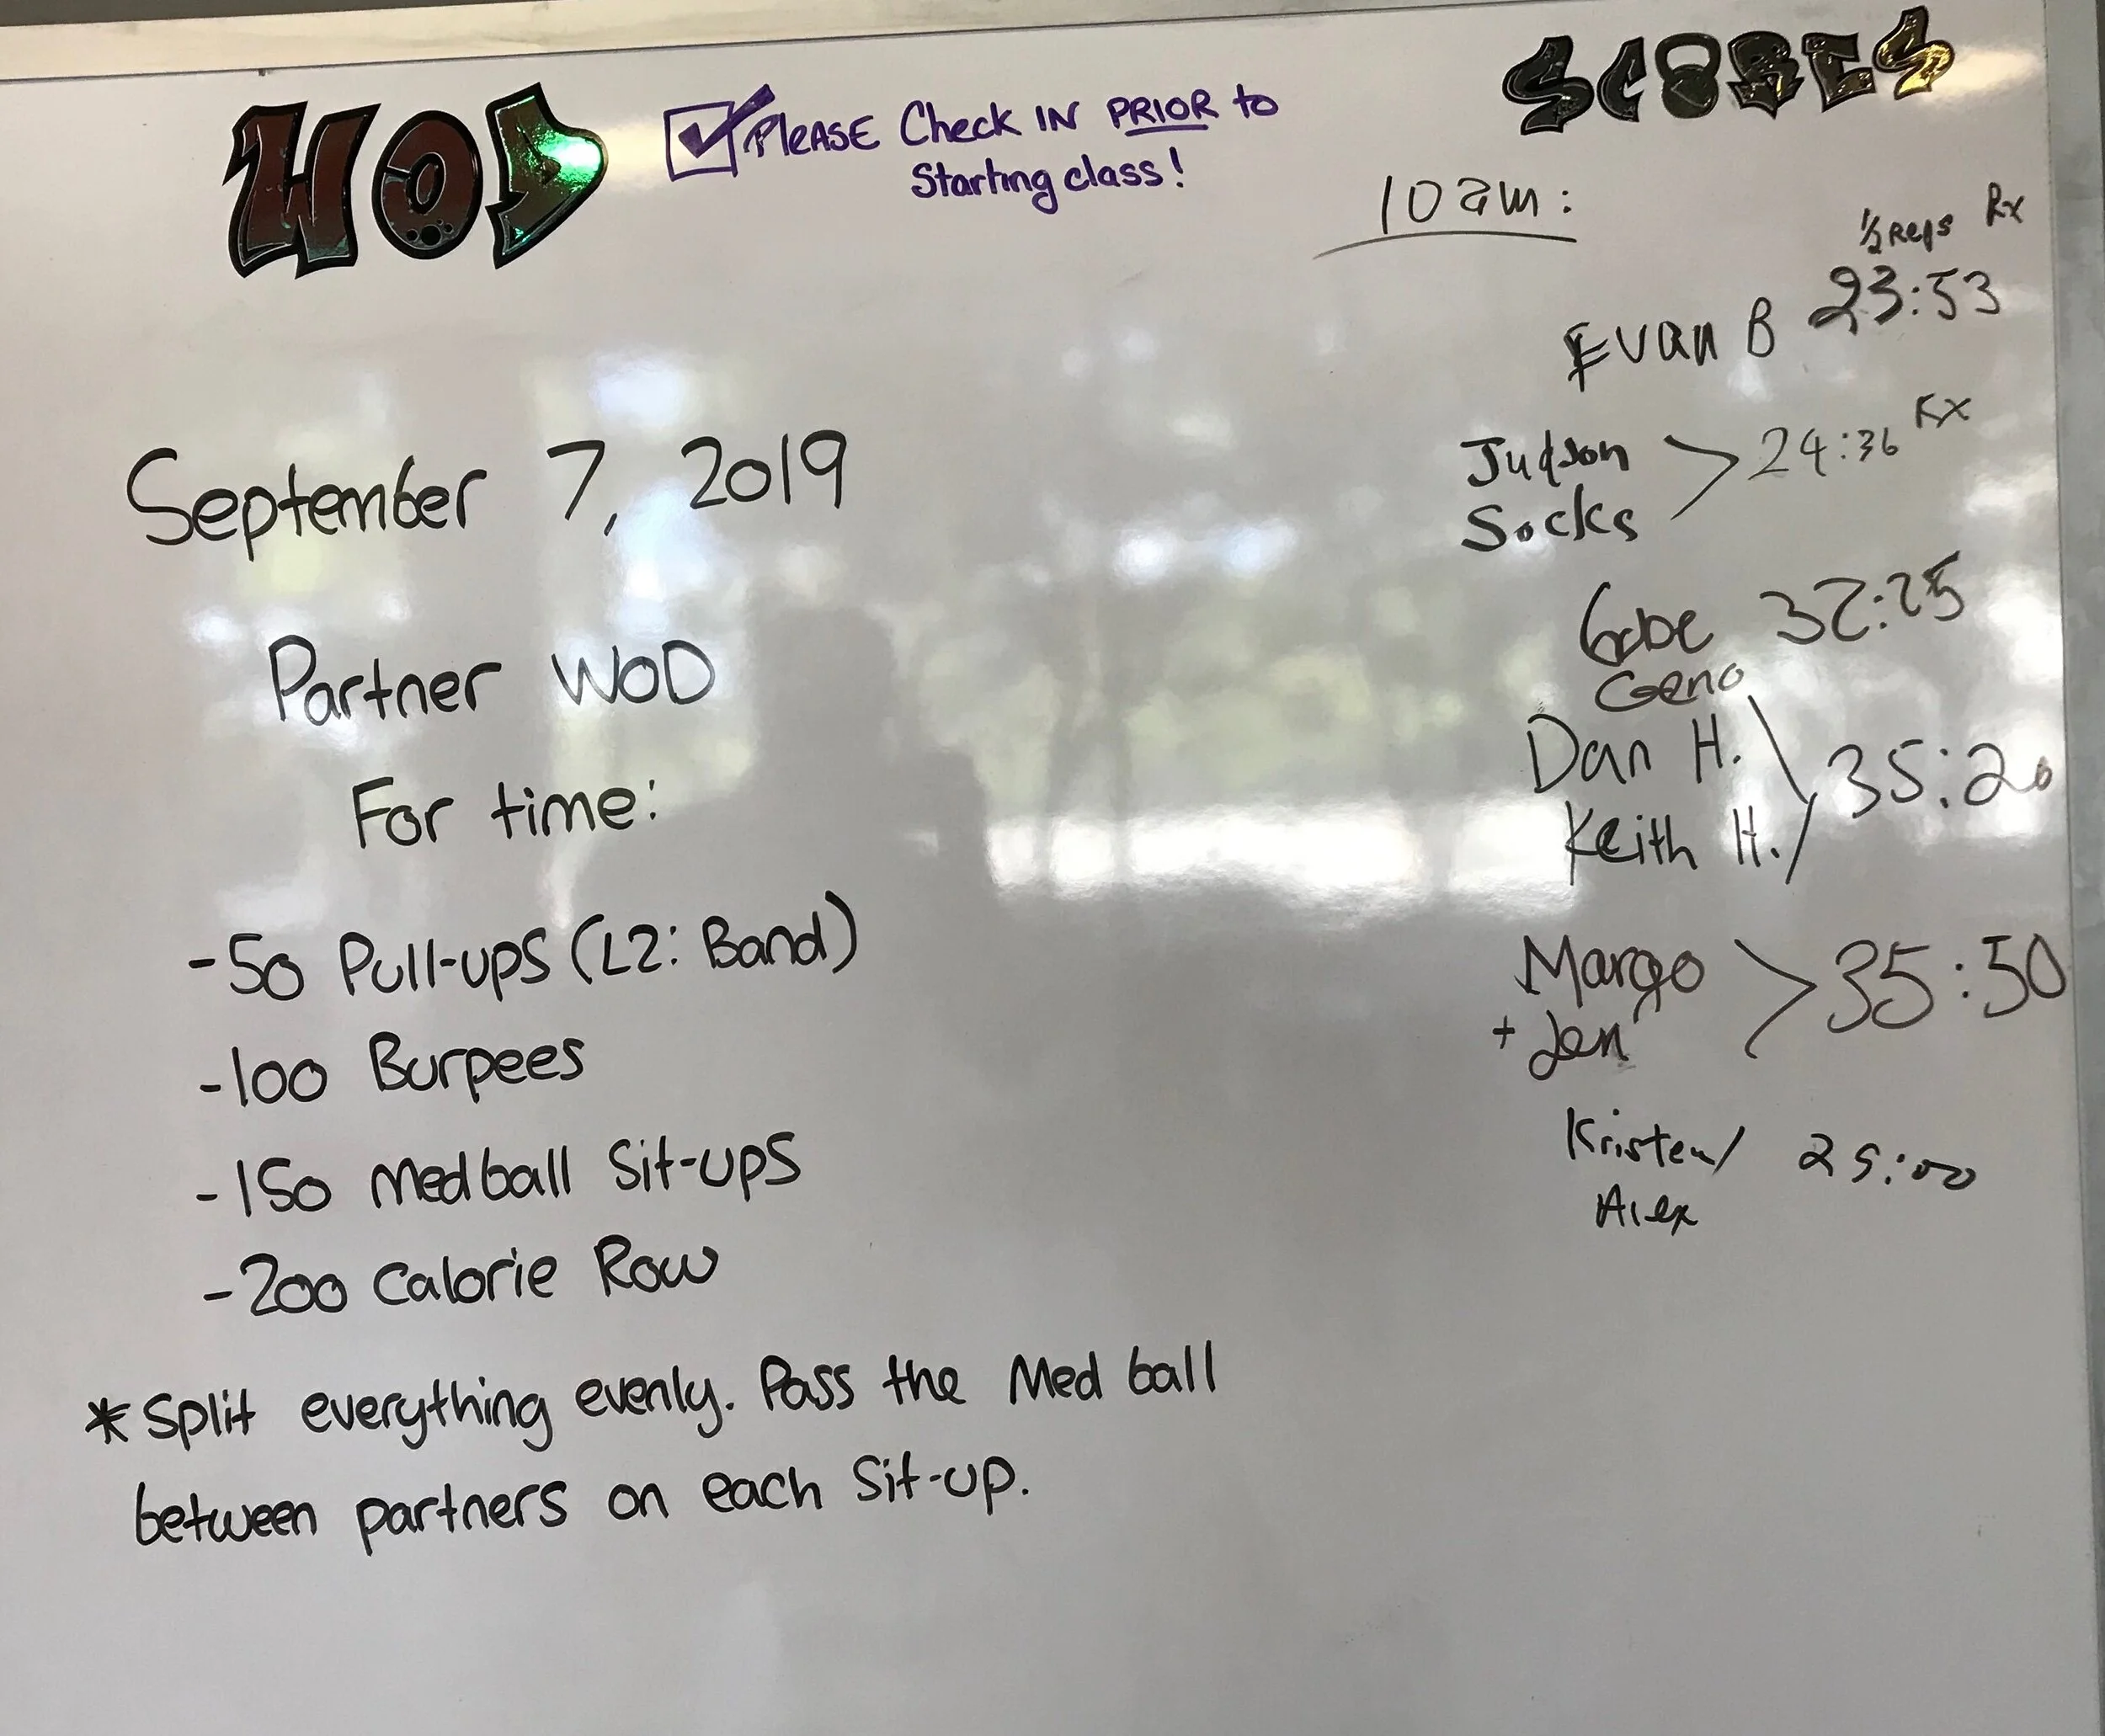 WOD
PleASE Check IN PRIOR to
Starting class!
September 7, 2019
Partner WOD
For time:
-50 Pull-ups (L2: Band)
-100 Burpees
-150 Medball Sit-ups
-200 Calorie Row
*Split everything evenly. Pass the Med ball
between partners on each Sit-up.
SCORES
10am:
1/2 Reps Rx
Evan B 23:53
Judson
Socks > 24:36 Rx
Gabe 32:25
Geno
Dan H.
Keith H. 35:20
Margo
+ Jen > 35:50
Kristen/
Alex